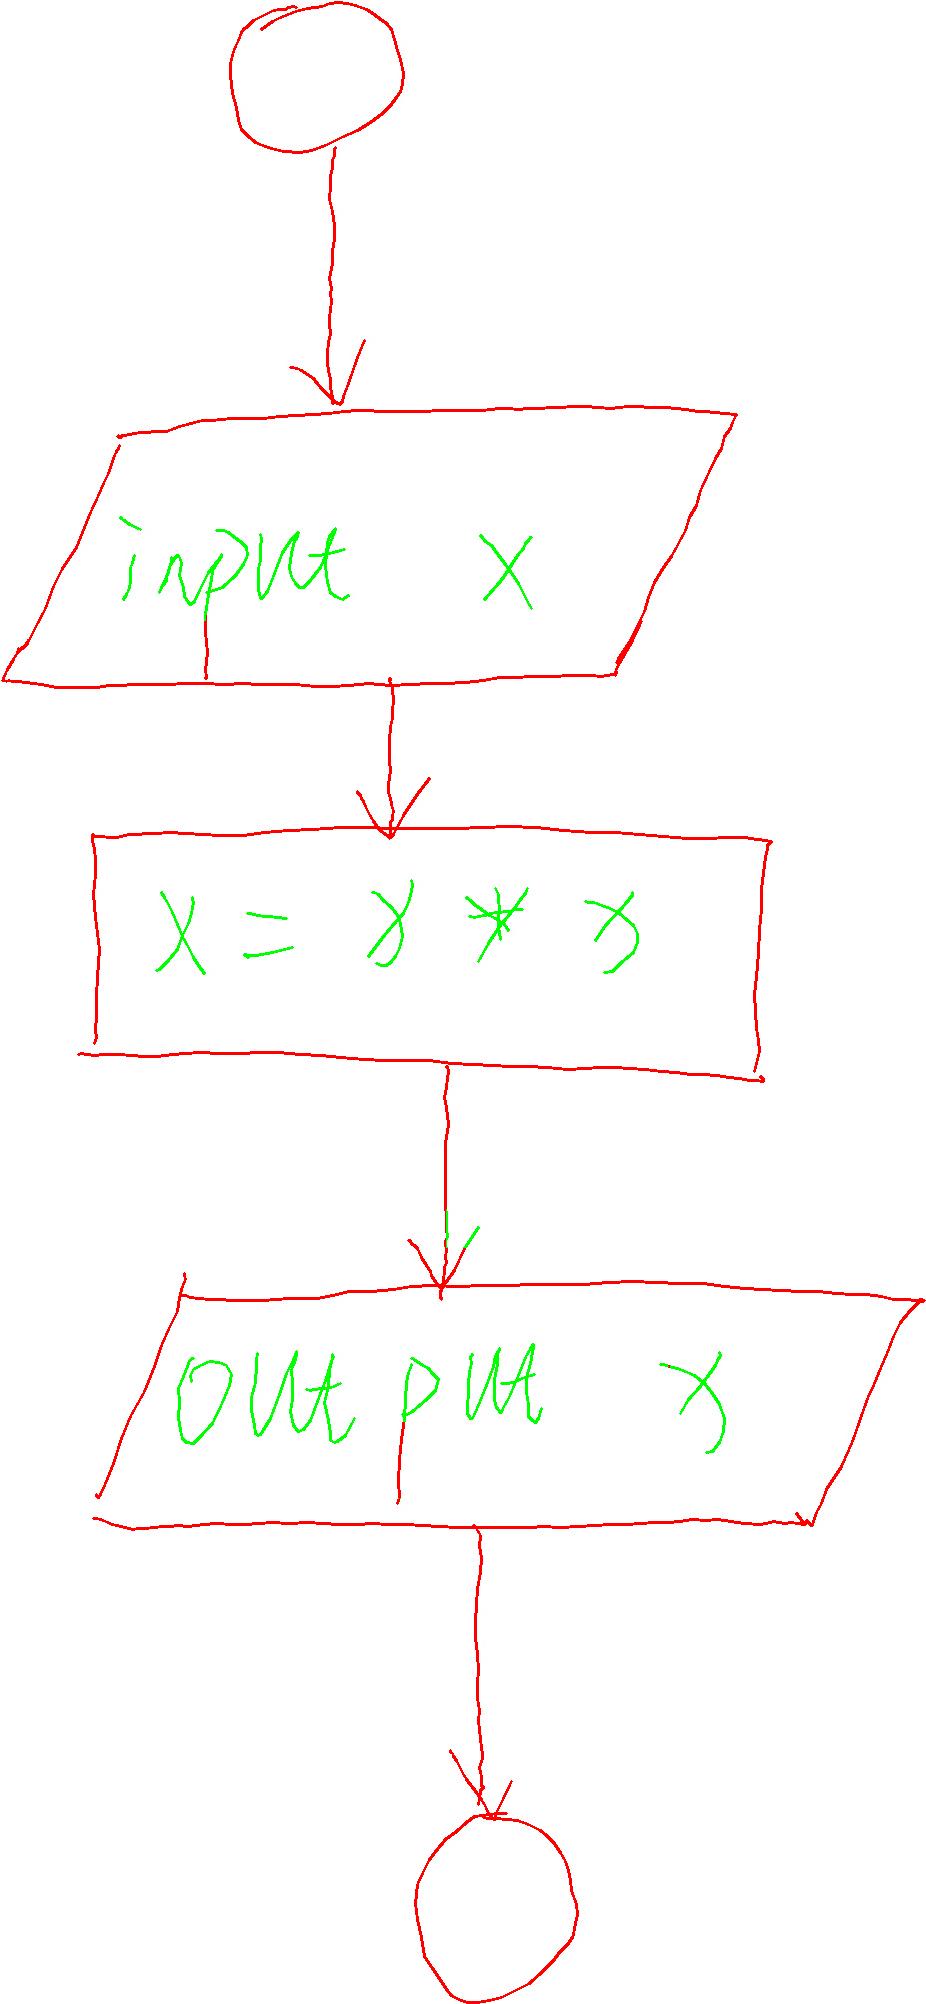 input x
x = x * x
out put x